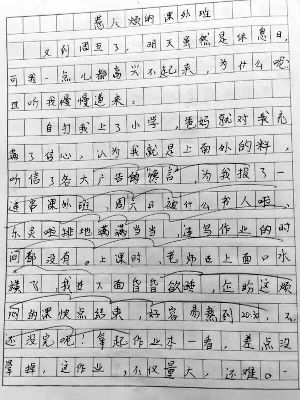 惹人烦的课外班
又到周五了，明天虽然是休息日，
可我一点儿都高兴不起来，为什么呢？
且听我慢慢道来。
自打我上了小学，爸妈就对我充
满了信心，认为我就是上的料，
听信了各大广告的馋言，为我报了一
连串课外班，周六日被什么书人啦，
东、排地满满当当，连写作业的时
间都没有。上课时，老师在上面口水
横飞，我在下面昏昏欲睡，在盼这烦
闷的课快点结束，好容易熬到20:30，不，
还没完呢！拿起作业本一看，差点没
晕掉，这作业，不仅量大，还难。一